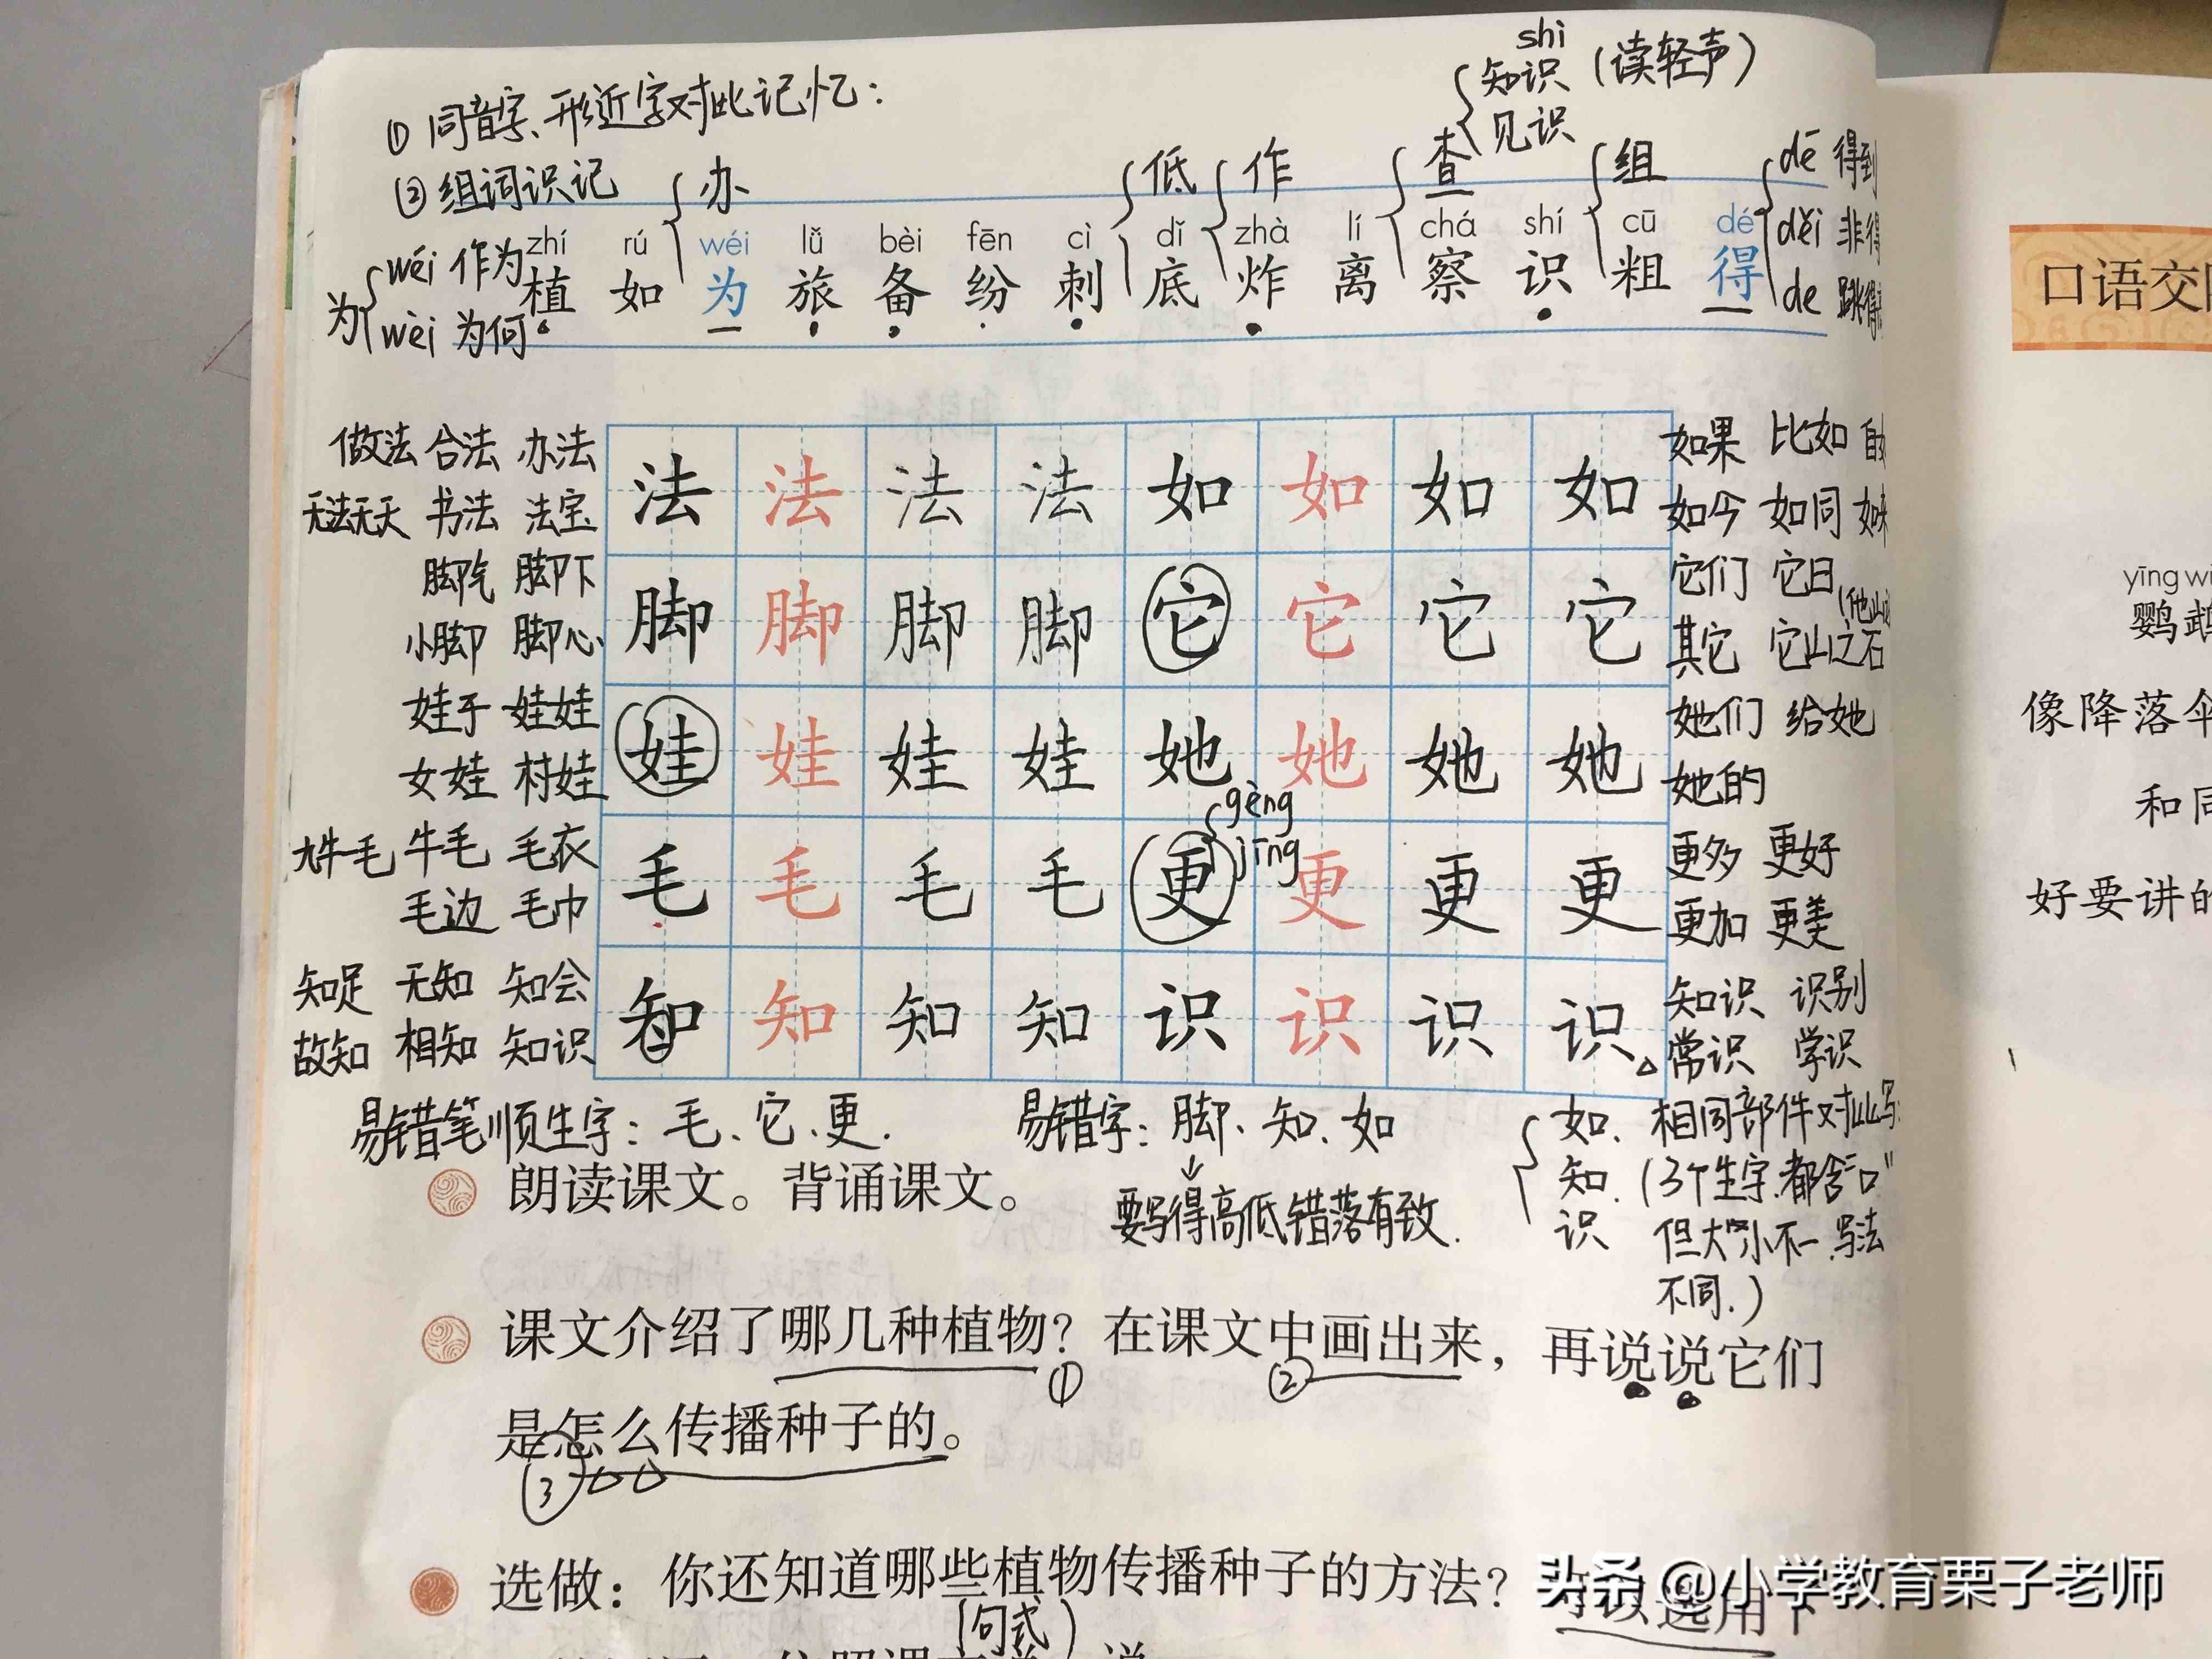 shi
知识（读轻声）
见识
①同音字、形近字对比记忆：
②组词识记
办
低
作
查
组
dé 得到
děi
de
wéi 作为
为
wèi 为何
zhí rú wéi lǚ bèi fēn cì dǐ zhà lí chá shí cū dé
植 如 为 旅 备 纷 刺 底 炸 离 察 识 粗 得
做法 合法 办法
无法无天 书法 法宝
法 法 法 法 如 如 如 如
如果 比如
如今 如同
脚气 脚下
小脚 脚心
脚 脚 脚 脚 它 它 它 它
它们 它日
其它 它山之石
娃子 娃娃
女娃 村娃
娃 娃 娃 娃 她 她 她 她
她们 给她
她的
gèng
jīng
九牛毛 牛毛 毛衣
毛边 毛巾
毛 毛 毛 毛 更 更 更 更
更多 更好
更加 更美
知足 无知 知会
故知 相知 知识
知 知 知 知 识 识 识 识
知识 识别
常识 学识
易错笔顺生字：毛、它、更.
易错字：脚、知、如
↓
要写得高低错落有致.
如、
知、
识
相同部件对比写
(3个生字，都含"口"
但大小不一，写法
不同.)
朗读课文。背诵课文。
课文介绍了哪几种植物？在课文中画出来，再说说它们
① ②
是怎么传播种子的。
③
选做：你还知道哪些植物传播种子的方法？可以选用下
(句式)
口语交
yīng
鹦鹉
像降落伞
和同
好要讲的
头条 @小学教育栗子老师